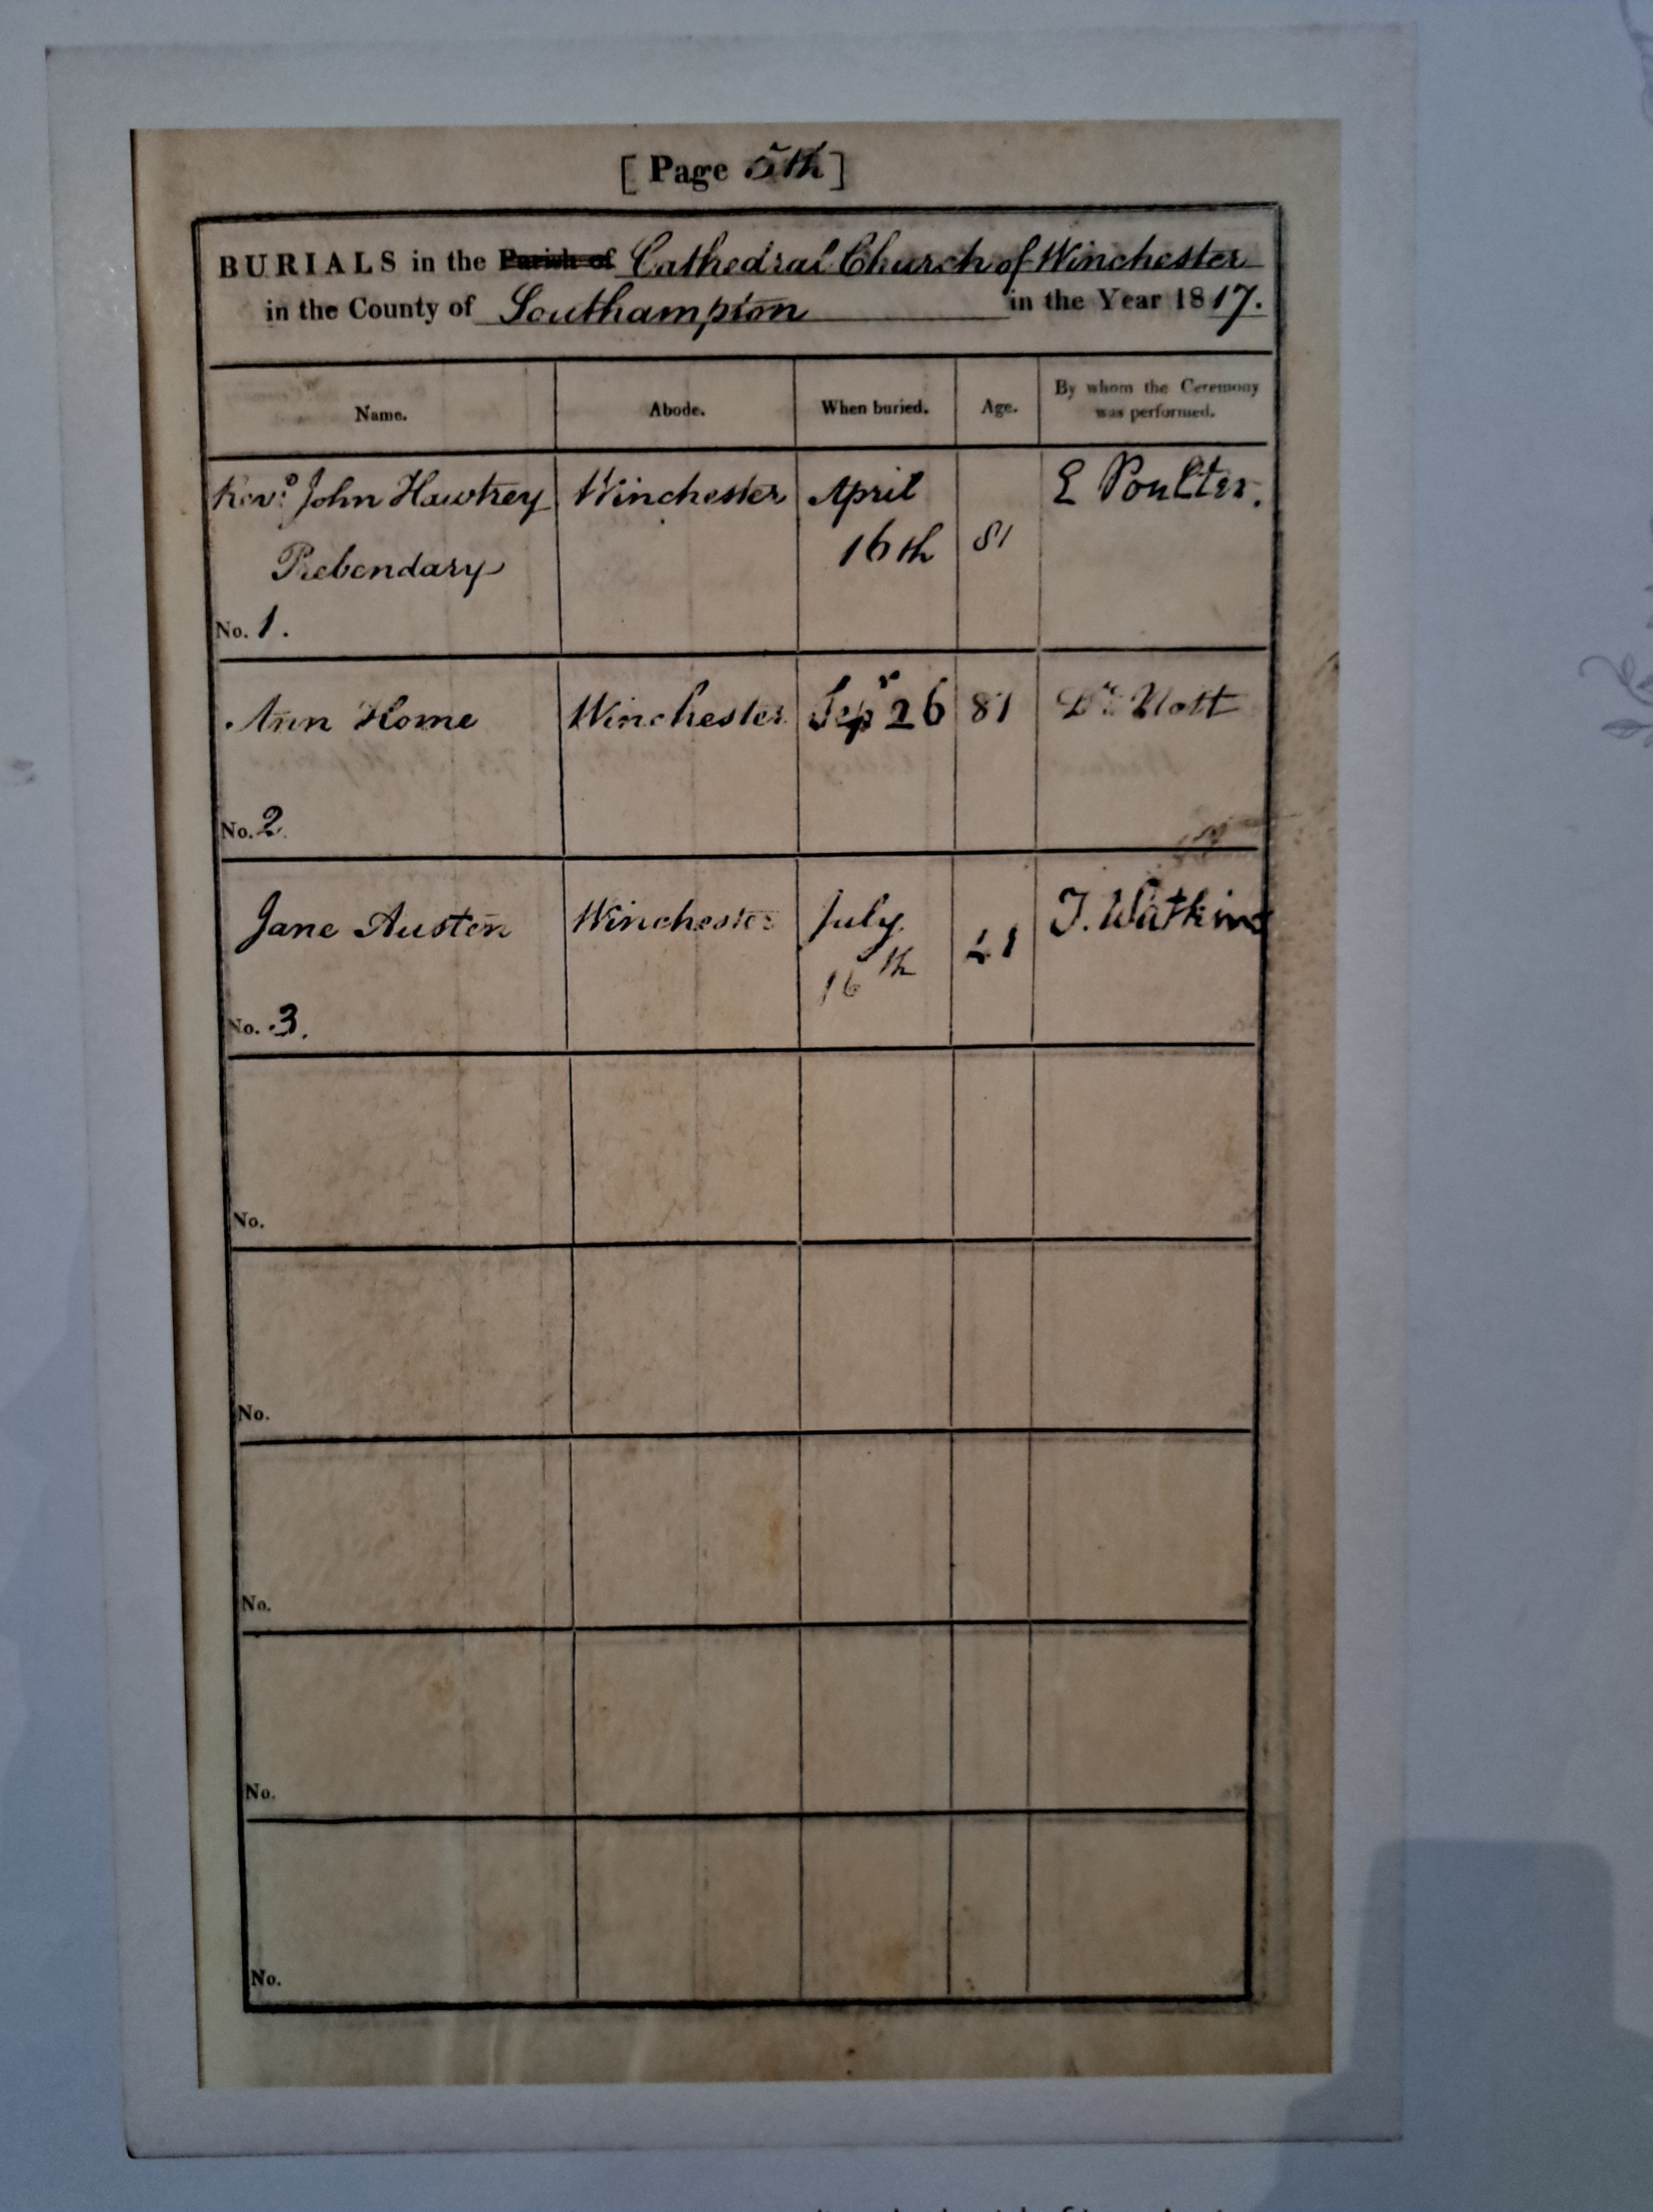 [ Page 5th ]
BURIALS in the Parish of Cathedral Church of Winchester
in the County of Southampton in the Year 1817.
Name. Abode. When buried. Age. By whom the Ceremony was performed.
Revd John Hawtrey Winchester April E Poulter.
Prebendary 16th 81
No. 1.
Ann Home Winchester Sepr 26 81 Dr. Nott
No. 2.
Jane Austen Winchester July T. Watkins
16th 41
No. 3.
No.
No.
No.
No.
No.